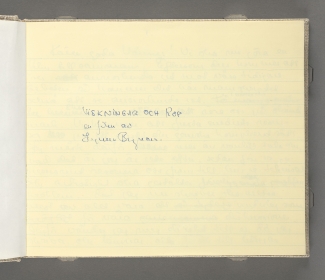 VISKNINGAR OCH ROP
en film av
Ingmar Bergman.